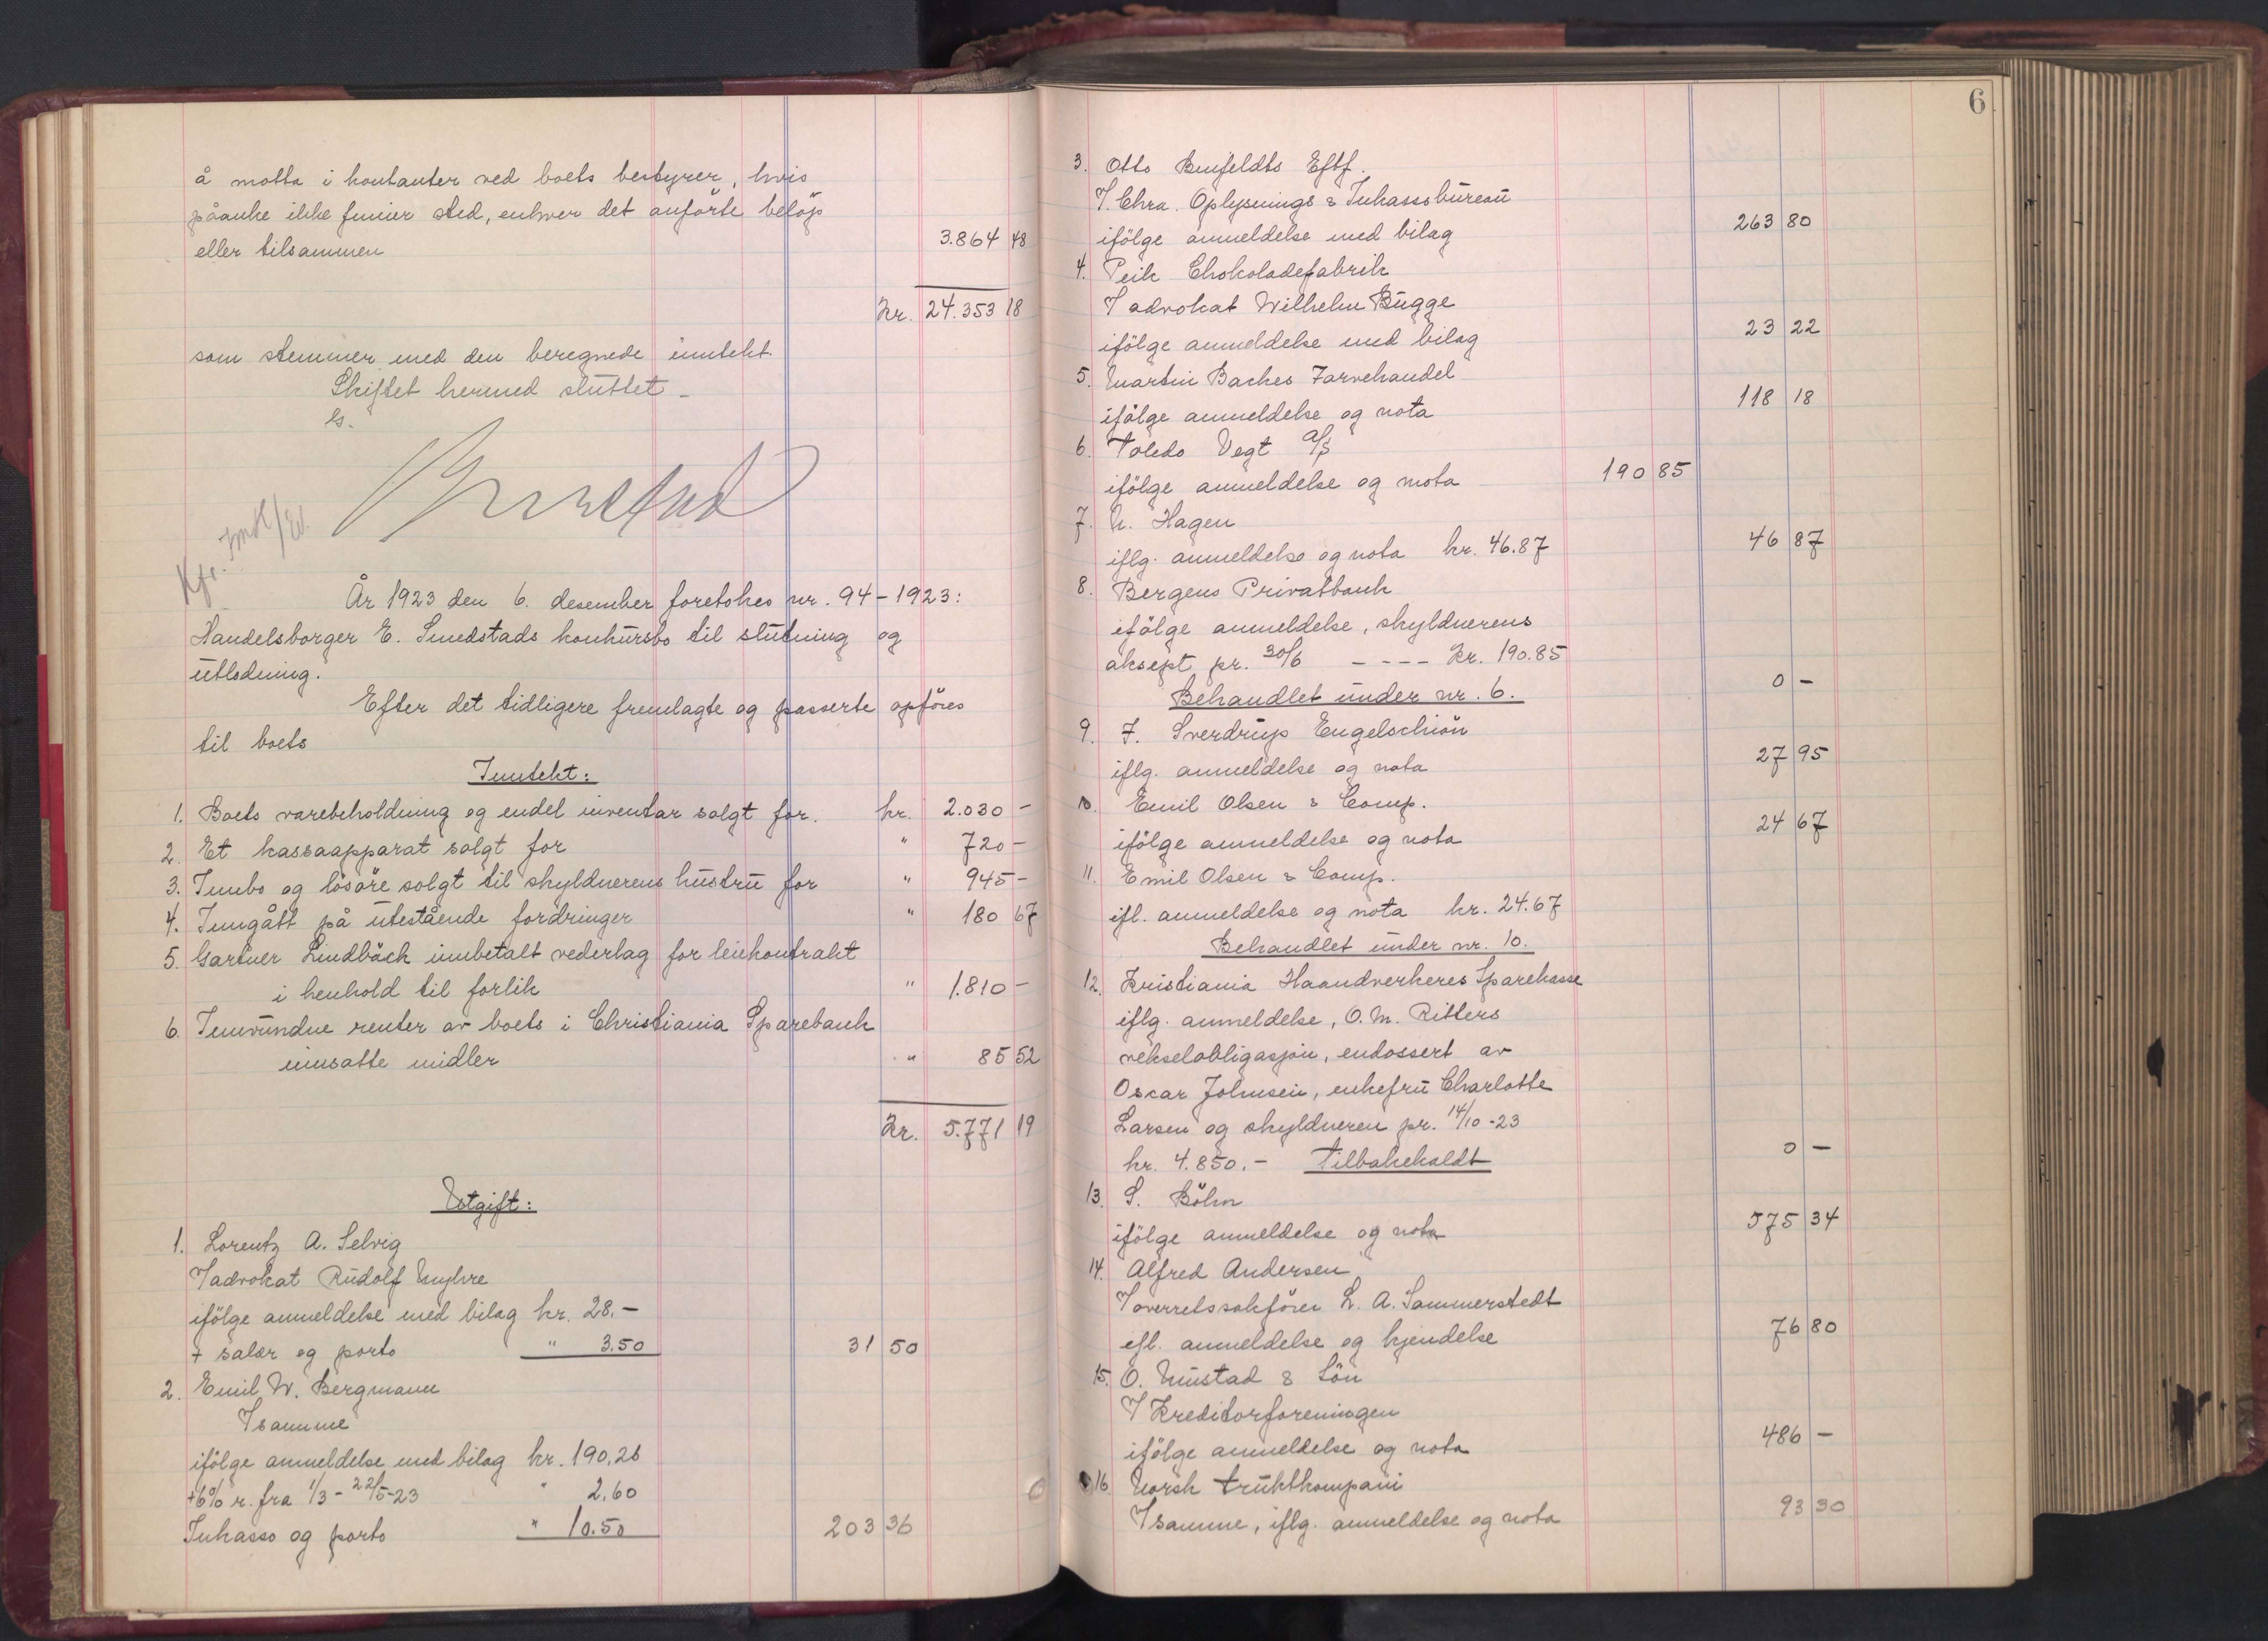 å motta i kontanter ved boets bestyrer, hvis
påanke ikke finner sted, enhver det anførte beløp
eller tilsammen 3.864 48
Kr. 24.353 18
som stemmer med den beregnede inntekt.
Skiftet hermed sluttet
Kfr.
År 1923 den 6. desember foretokes nr. 94-1923:
Handelsborger E. Smedstads konkursbo til slutning og
utlodning.
Efter det tidligere fremlagte og passerte opføres
til boets
Inntekt:
1. Boets varebeholdning og endel inventar solgt for. kr. 2.030 -
2. Et kassaapparat solgt for " 720 -
3. Innbo og løsøre solgt til skyldnerens hustru for " 945 -
4. Inngått på utestående fordringer " 180 67
5. Gartner Lindbäck innbetalt vederlag for leiekontrakt
i henhold til forlik " 1.810 -
6. Innvundne renter av boets i Christiania Sparebank
innsatte midler " 85 52
Kr. 5.771 19
Utgift:
1. Lorentz A. Selvig
V advokat Rudolf Myhre
ifølge anmeldelse med bilag kr. 28.-
+ salær og porto " 3.50 31 50
2. Emil W. Bergmann
V samme
ifølge anmeldelse med bilag kr. 190.26
+6% r. fra 1/3 - 22/5-23 " 2.60
Inkasso og porto " 10.50 203 36
6
3. Otto Benfeldts Eftf.
V. Chra. Oplysnings & Inkassobureau
ifølge anmeldelse med bilag 263 80
4. Peik Chokoladefabrik
V advokat Wilhelm Bugge
ifølge anmeldelse med bilag 23 22
5. Martin Baches Farvehandel
ifølge anmeldelse og nota 118 18
6. Toledo Vegt A/S
ifølge anmeldelse og nota 190 85
7. N. Hagen
iflg. anmeldelse og nota kr. 46.87 46 87
8. Bergens Privatbank
ifølge anmeldelse, skyldnerens
aksept pr. 30/6 - - - - Kr. 190.85
Behandlet under nr. 6. 0 -
9. F. Sverdrup Engelschiøn
iflg. anmeldelse og nota 27 95
10. Emil Olsen & Comp.
ifølge anmeldelse og nota 24 67
11. Emil Olsen & Comp.
ifl. anmeldelse og nota kr. 24.67
Behandlet under nr. 10.
12. Kristiania Haandverkeres Sparekasse
iflg. anmeldelse, O. M. Ritters
vekselobligasjon, endossert av
Oscar Johnsen, enkefru Charlotte
Larsen og skyldneren pr. 14/10 - 23
kr. 4.850.- Tilbakekaldt 0 -
13. S. Böhn
ifølge anmeldelse og nota 575 34
14. Alfred Andersen
V overretssakfører L. A. Sammerstedt
efl. anmeldelse og kjendelse 76 80
15. O. Mustad & Søn
V Kreditorforeningen
ifølge anmeldelse og nota 486 -
16. Norsk Fruktkompani
V samme, iflg. anmeldelse og nota 93 30